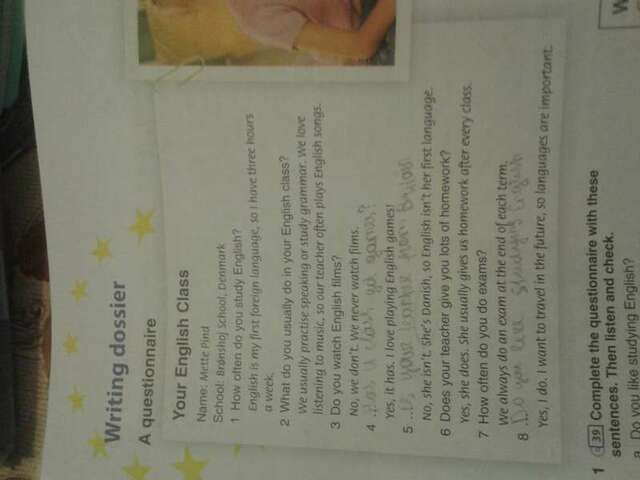 Writing dossier
A questionnaire
Your English Class
Name: Mette Pind
School: Brønshøj School, Denmark
1 How often do you study English?
English is my first foreign language, so I have three hours
a week.
2 What do you usually do in your English class?
We usually practise speaking or study grammar. We love
listening to music, so our teacher often plays English songs.
3 Do you watch English films?
No, we don't. We never watch films.
4 class got games?
Yes, it has. I love playing English games!
5 Is your teache from Britain
No, she isn't. She's Danish, so English isn't her first language.
6 Does your teacher give you lots of homework?
Yes, she does. She usually gives us homework after every class.
7 How often do you do exams?
We always do an exam at the end of each term.
8 Do you like studying
Yes, I do. I want to travel in the future, so languages are important.
1 39 Complete the questionnaire with these
sentences. Then listen and check.
a Do you like studying English?
W